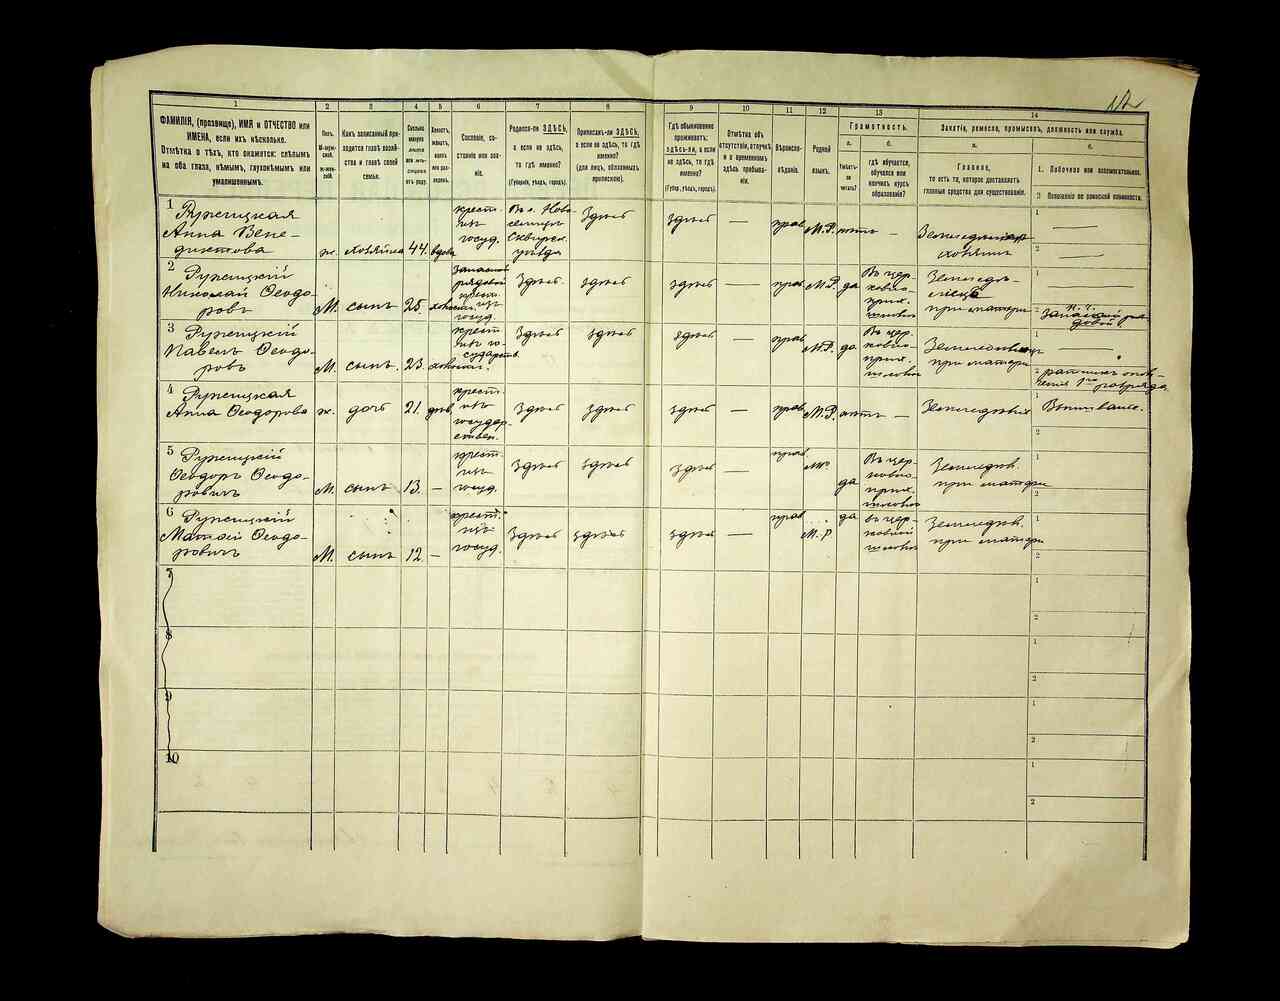 12
1 2 3 4 5 6 7 8 9 10 11 12 13 14
ФАМИЛІЯ, (прозвище), ИМЯ и ОТЧЕСТВО или
ИМЕНА, если ихъ нѣсколько.
Отмѣтка о тѣхъ, кто окажется: слѣпымъ
на оба глаза, нѣмымъ, глухонѣмымъ или
умалишеннымъ.
Полъ.
Какъ записанный при-
ходится главѣ хозяй-
ства и главѣ своей
семьи.
Сколько
минуло
лѣтъ
отъ роду.
Холостъ,
женатъ,
вдовъ
или раз-
веденъ.
Сословіе, со-
стояніе или зва-
ніе.
Родился-ли ЗДѢСЬ,
а если не здѣсь,
то гдѣ именно?
(Губернія, уѣздъ, городъ).
Приписанъ-ли ЗДѢСЬ,
а если не здѣсь, то гдѣ
именно?
(для лицъ, обязанныхъ
припискою).
Гдѣ обыкновенно
проживаетъ:
здѣсь-ли, а если
не здѣсь, то гдѣ
именно?
(Губер., уѣздъ, городъ).
Отмѣтка объ
отсутствіи, отлучкѣ
и о временномъ
здѣсь пребыва-
ніи.
Вѣроиспо-
вѣданіе.
Родной
языкъ.
Грамотность.
а.
Умѣетъ-
ли
читать?
б.
гдѣ обучается,
обучался или
кончилъ курсъ
образованія?
Занятіе, ремесло, промыселъ, должность или служба.
а.
Главное,
то есть то, которое доставляетъ
главныя средства для существованія.
б.
1. Побочное или вспомогательное.
2. Положеніе по воинской повинности.
1 Ружицкая
Анна Вене-
диктова ж. хозяйка 44. вдова
крест.
изъ
госуд.
Въ с. Ново-
селицѣ
Сквирск.
уѣзда
Здѣсь здѣсь — прав. М.Р. нѣтъ —
хозяинъ
1 —
2 —
2 Ружицкій
Николай Ѳеодо-
ровъ М. сынъ 25. холост.
Запасной
рядовой
крест.
изъ
госуд.
Здѣсь. здѣсь здѣсь — прав. М.Р. да
Въ цер-
ковно-
прих.
школѣ
при матери
1 —
2 рядовой
3 Ружицкій
Павелъ Ѳеодо-
ровъ М. сынъ. 23. холост.
крест.
изъ го-
сударств.
Здѣсь здѣсь здѣсь — прав. М.Р. да
Въ цер-
ковно-
прих.
школѣ
при матери
1 —
2 ратникъ опол-
ченія 1го разряда
4 Ружицкая
Анна Ѳеодорова ж. дочь 21. дѣв.
крест.
изъ
государ-
ствен.
Здѣсь здѣсь здѣсь — прав. М.Р. нѣтъ —
1
2
5 Ружицкій
Ѳеодоръ Ѳеодо-
ровичъ М. сынъ 13. —
крест.
изъ
госуд.
здѣсь здѣсь здѣсь — прав. М.Р. да
Въ цер-
ковно-
прих.
школѣ
Земледѣл.
при матери
1
2
6 Ружицкій
Ѳеодо-
ровичъ М. сынъ 12. —
крест.
изъ
госуд.
Здѣсь здѣсь здѣсь — прав. М.Р. да
въ цер-
ковной
школѣ
Земледѣл.
при матери
1
2
7
1
2
8
1
2
9
1
2
10
1
2